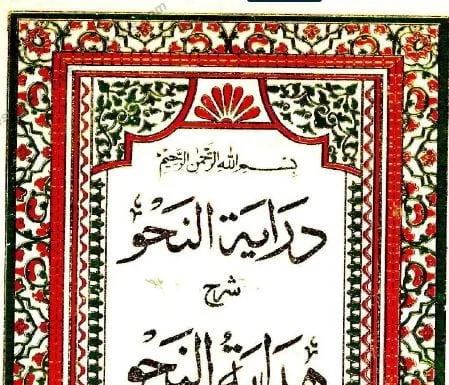 بسم الله الرحمن الرحيم
دراية النحو
شرح
هداية النحو